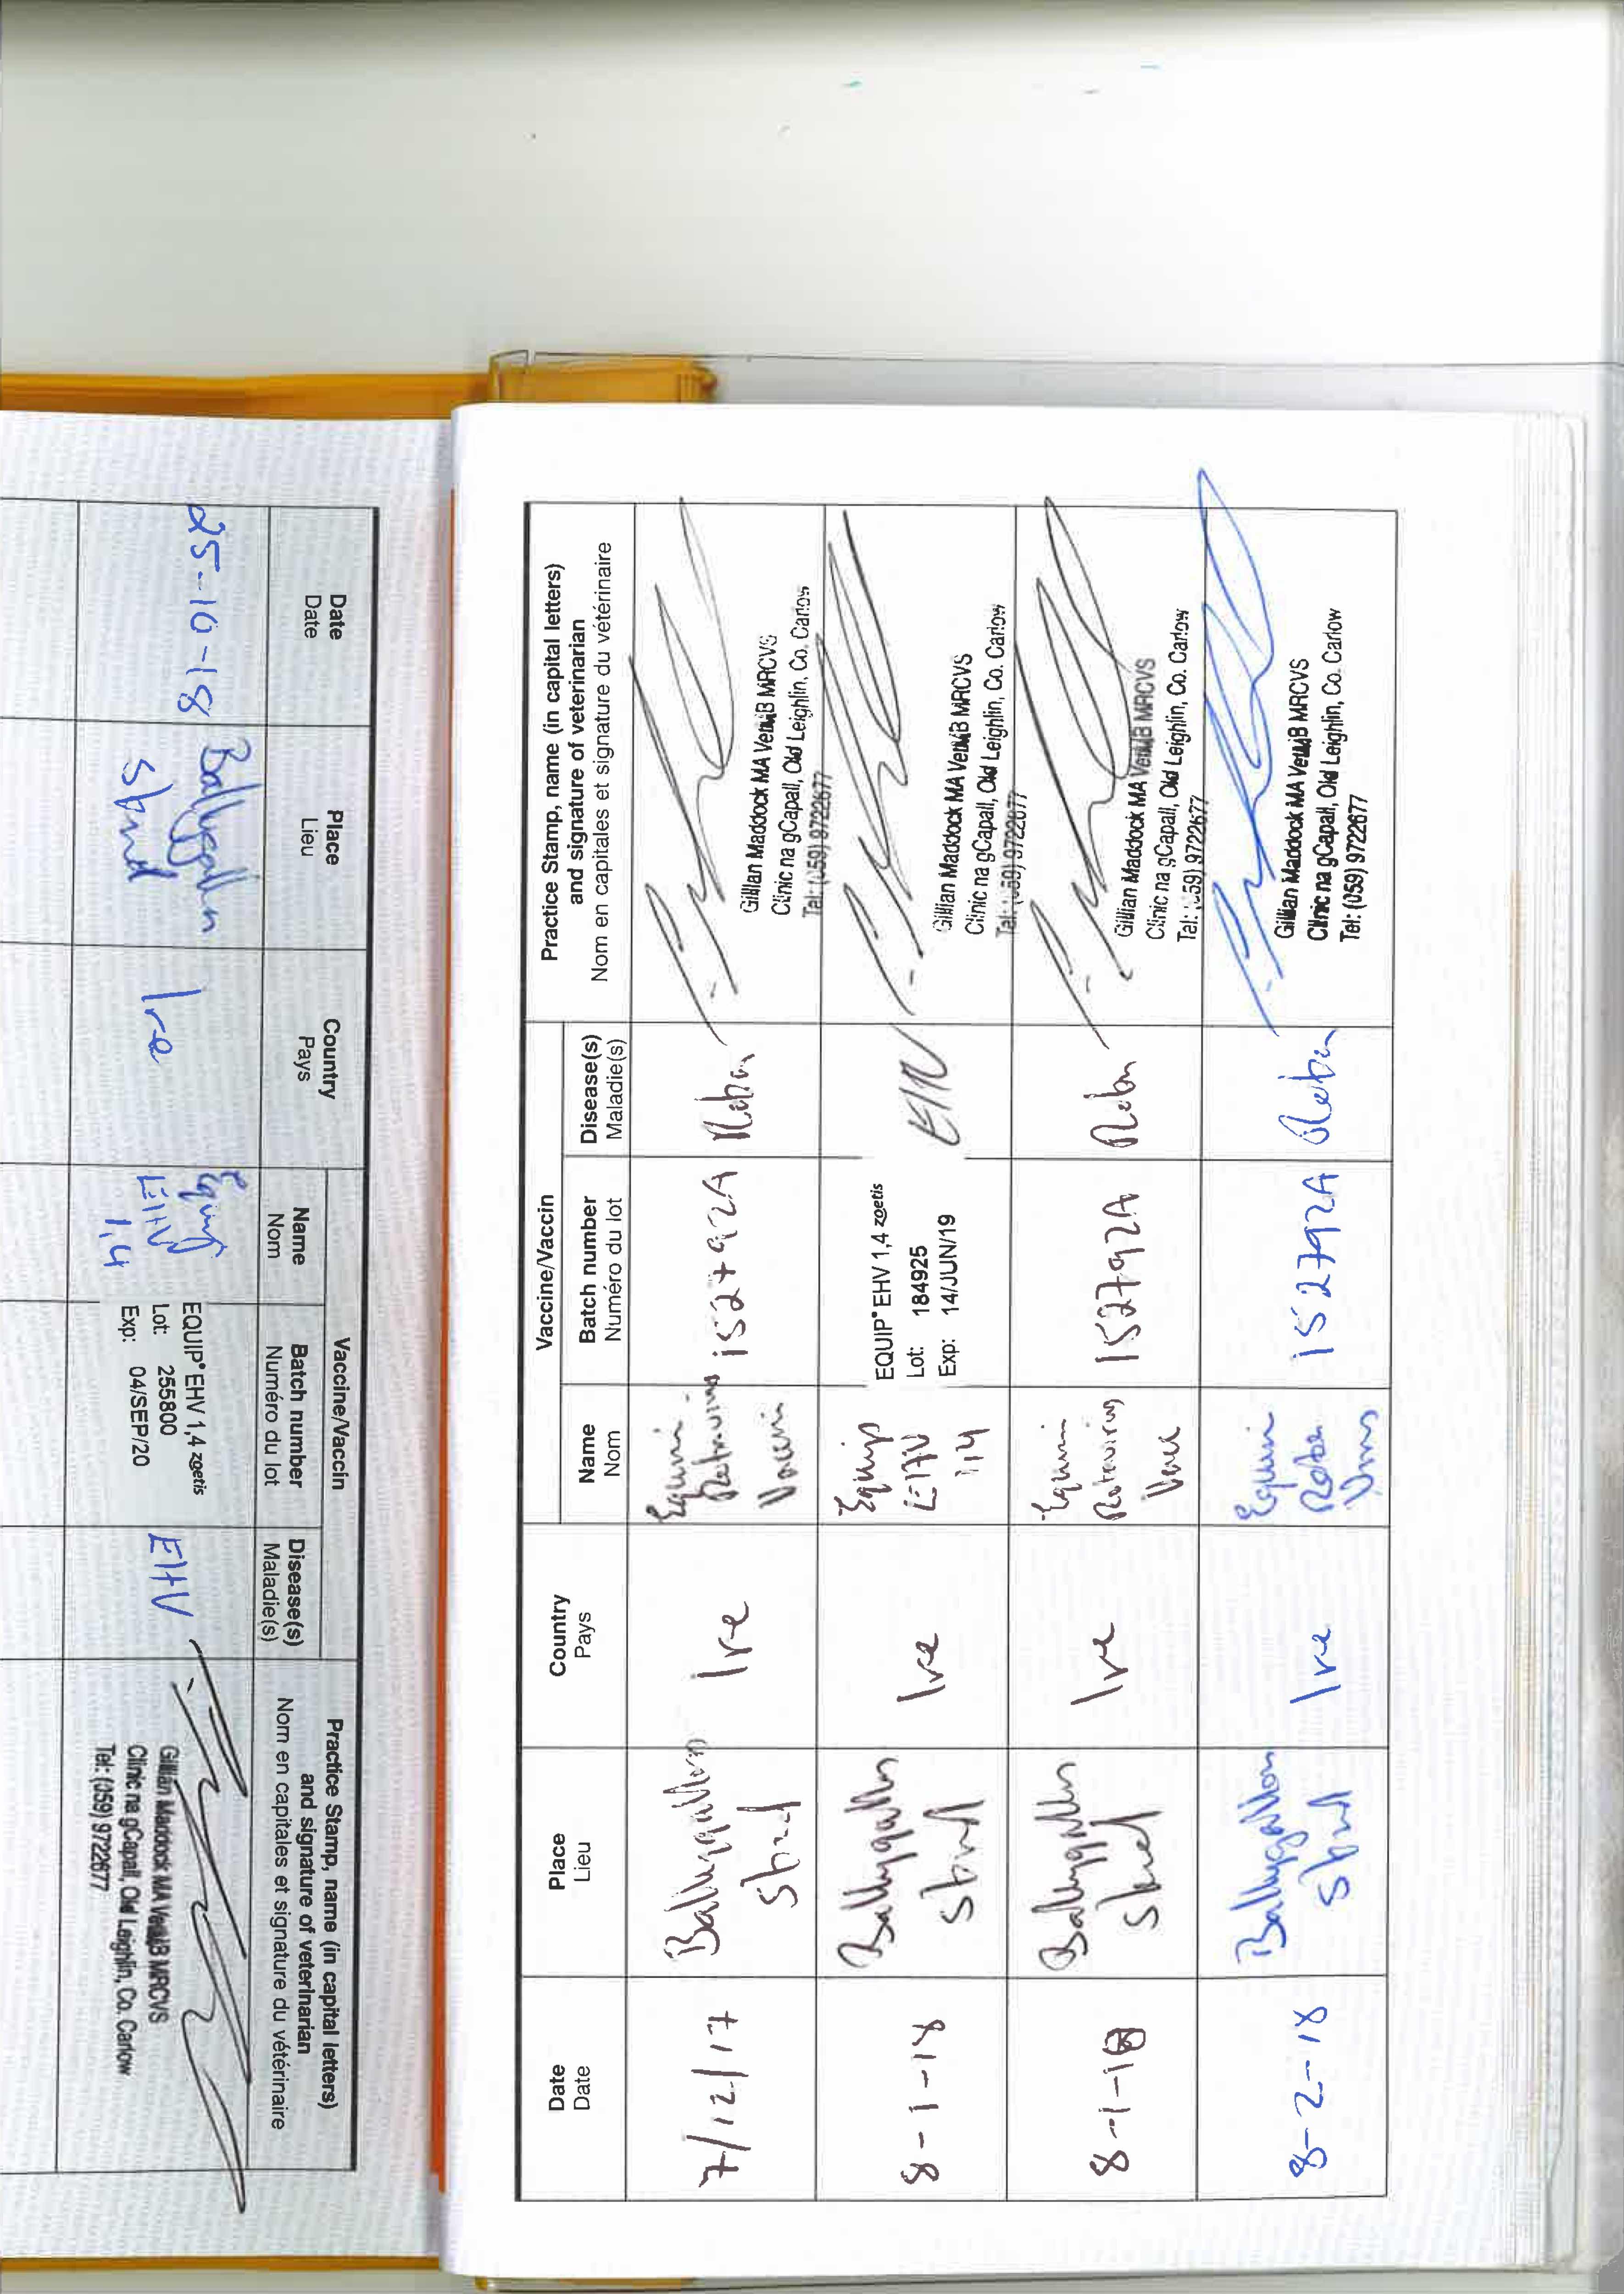 Date
Date
Place
Lieu
Country
Pays
Vaccine/Vaccin
Name
Nom
Batch number
Numéro du lot
Disease(s)
Maladie(s)
Practice Stamp, name (in capital letters)
and signature of veterinarian
Nom en capitales et signature du vétérinaire
7/12/17
Ballygallon
Stud
Ire
Equine
Rotavirus
Vaccine
152792A
Rota
Gillian Maddock MA VetMB MRCVS
Clinic na gCapall, Old Leighlin, Co. Carlow
Tel: (059) 9722677
8-1-18
Ballygallon
Stud
Ire
Equip
EHV
1,4
EQUIP EHV 1,4 zoetis
Lot: 184925
Exp: 14/JUN/19
EHV
Gillian Maddock MA VetMB MRCVS
Clinic na gCapall, Old Leighlin, Co. Carlow
Tel: (059) 9722677
8-1-18
Ballygallon
Stud
Ire
Equine
Rotavirus
152792A
Gillian Maddock MA VetMB MRCVS
Clinic na gCapall, Old Leighlin, Co. Carlow
Tel: (059) 9722677
8-2-18
Ballygallon
Stud
Ire
Equine
Rota
Virus
152792A
Gillian Maddock MA VetMB MRCVS
Clinic na gCapall, Old Leighlin, Co. Carlow
Tel: (059) 9722677
Date
Date
Place
Lieu
Country
Pays
Vaccine/Vaccin
Name
Nom
Batch number
Numéro du lot
Disease(s)
Maladie(s)
Practice Stamp, name (in capital letters)
and signature of veterinarian
Nom en capitales et signature du vétérinaire
25-10-18
Ballygallon
Stud
Ire
Equip
EHV
1,4
EQUIP EHV 1,4 zoetis
Lot: 255800
Exp: 04/SEP/20
EHV
Gillian Maddock MA VetMB MRCVS
Clinic na gCapall, Old Leighlin, Co. Carlow
Tel: (059) 9722677